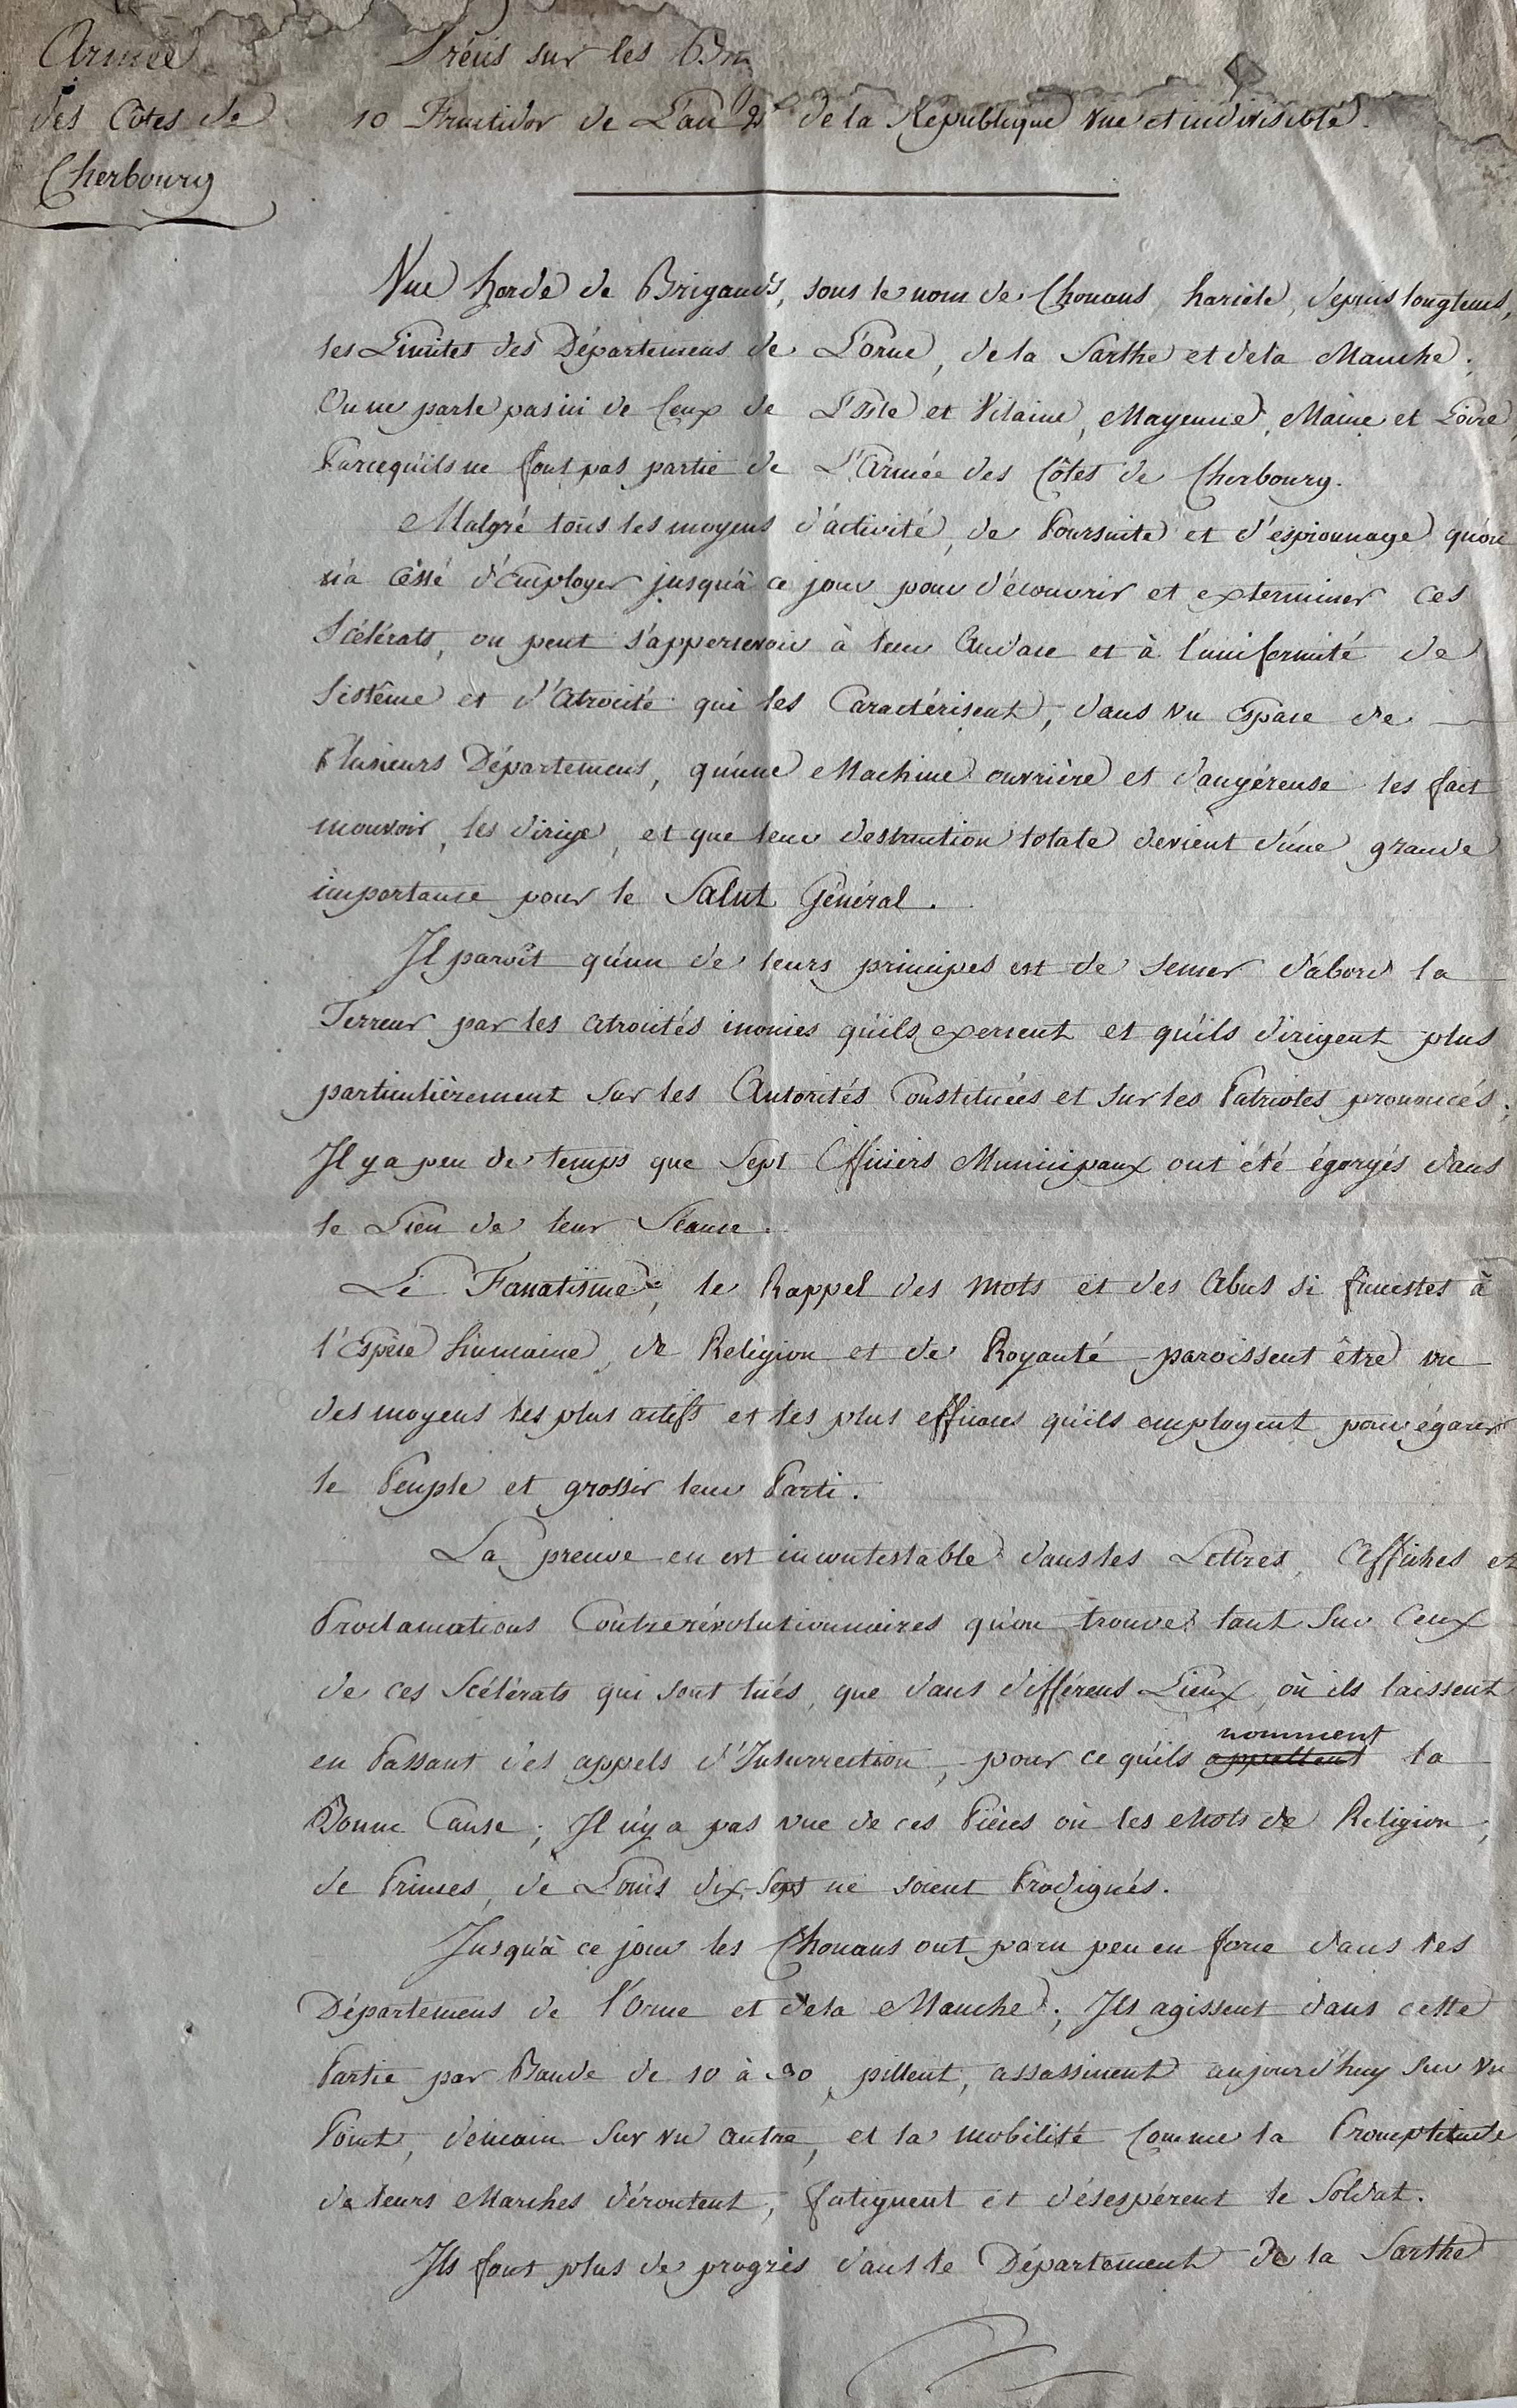 Armée
des Côtes de
Cherbourg
Précis sur les
10 Fructidor de L'an 2e de la République Une et indivisible.
Une horde de Brigands, sous le nom de Chouans, harcèle, depuis longtems,
les Limites des Départemens de L'orne, de la Sarthe et de la Manche.
On ne parle pas ici de Ceux de L'Isle et Vilaine, Mayenne, Maine et Loire,
Parcequ'ils ne font pas partie de L'Armée des Côtes de Cherbourg.
Malgré tous les moyens d'activité, de Poursuite et d'espionnage qu'on
n'a cessé d'Employer jusqu'à ce jour pour découvrir et exterminer ces
Scélérats, on peut s'appercevoir à leur Audace et à l'uniformité de
Sistême et d'Atrocité qui les Caractérisent, dans un Espace de
Plusieurs Départemens, qu'une Machine ouvrière et dangéreuse les fait
mouvoir, les dirige, et que leur destruction totale devient d'une grande
importance pour le Salut Général.
Il paroît qu'un de leurs principes est de semer d'abord la
Terreur par les Atrocités inouies qu'ils exercent et qu'ils dirigent plus
particulièrement sur les Autorités Constituées et sur les Patriotes prononcés;
Il y a peu de temps que Sept Officiers Municipaux ont été égorgés dans
le Lieu de leur Séance.
Le Fanatisme, le Rappel des mots et des Abus si funestes à
l'Espèce humaine, de Religion et de Royauté paroissent être un
des moyens les plus actifs et les plus efficaces qu'ils employent pour égarer
le Peuple et grossir leur Parti.
La preuve en est incontestable dans les Lettres, Affiches et
Proclamations Contrerévolutionnaires qu'on trouve tant sur Ceux
de ces Scélérats qui sont tués, que dans différens Lieux où ils laissent
en Passant des appels d'Insurrection, pour ce qu'ils appellent nomment la
Bonne Cause; Il n'y a pas une de ces Pièces où les Mots de Religion,
de Princes, de Louis dix-Sept ne soient Prodigués.
Jusqu'à ce jour les Chouans ont paru peu en force dans les
Départemens de l'Orne et de la Manche; Ils agissent dans cette
Partie par Bande de 10 à 30, pillent, assassinent aujourd'huy sur un
Point, demain sur un autre, et la mobilité comme la Promptitude
de leurs Marches déroutent, fatiguent et désespérent le Soldat.
Ils font plus de progrès dans le Département de la Sarthe